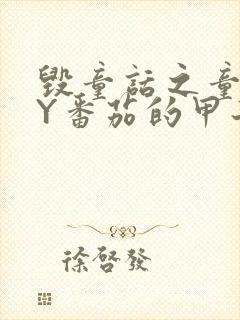 毁童话之童
Y番茄的甲
徐啓發